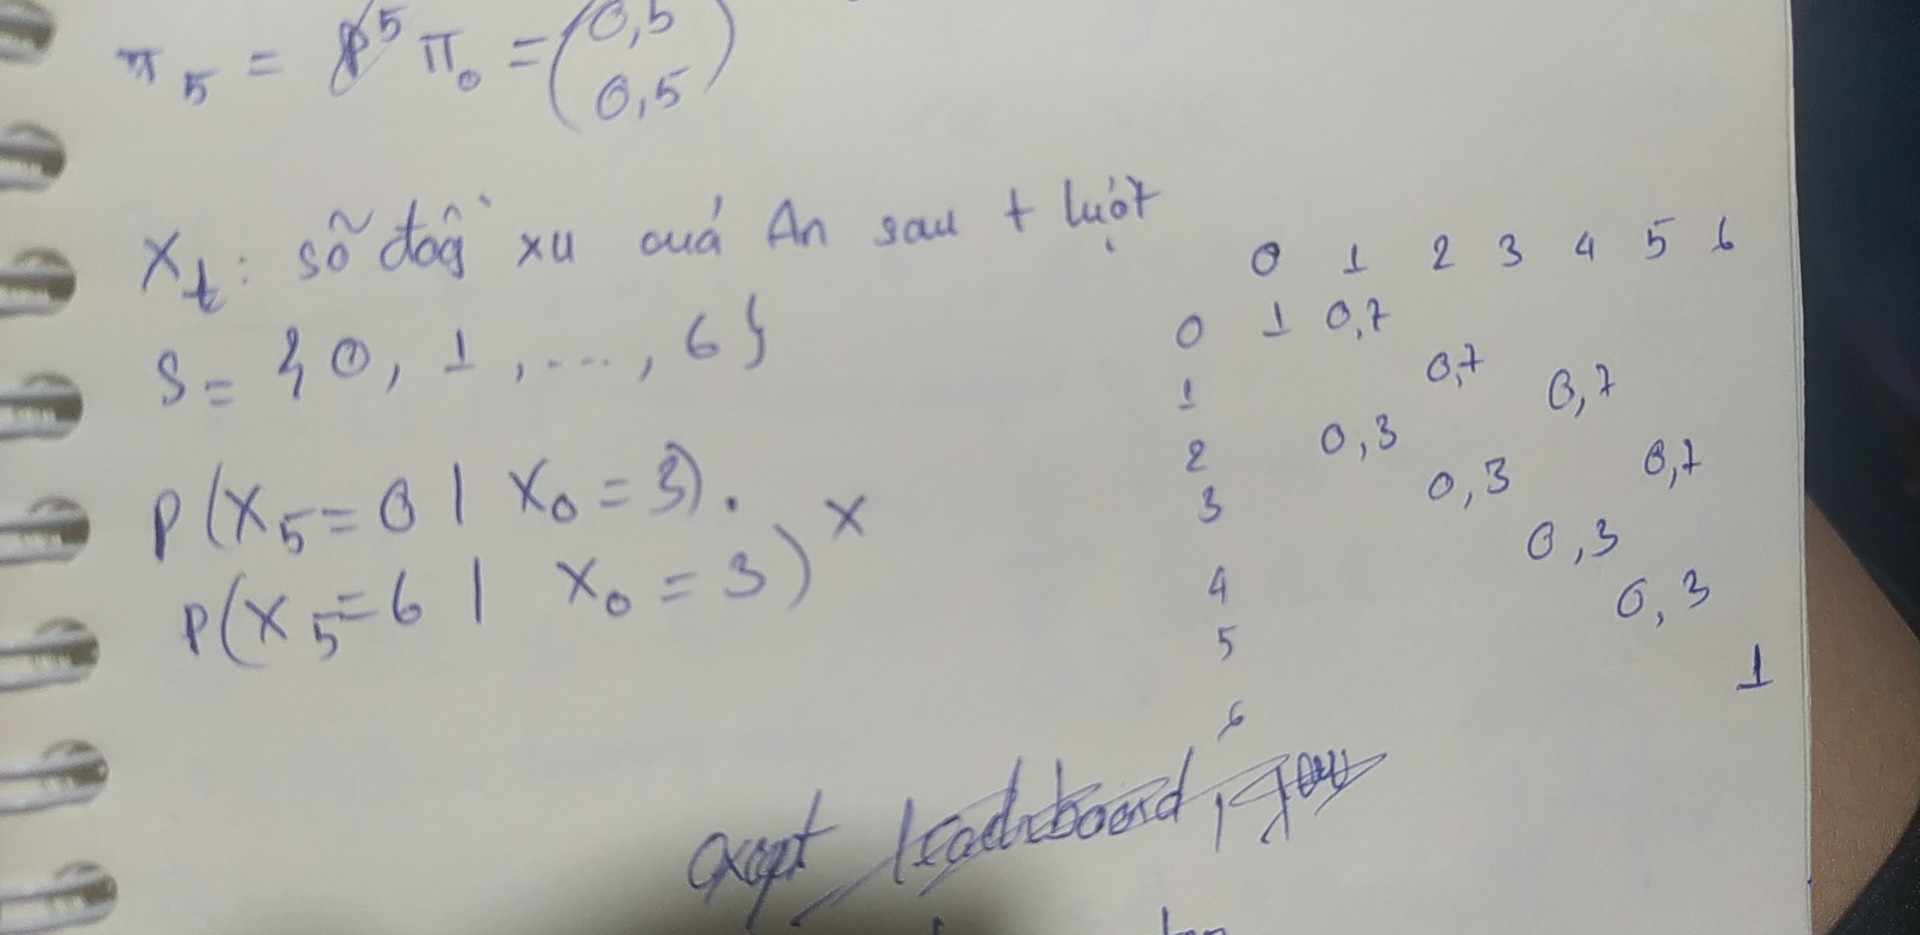 π₅ = P⁵ π₀ = (0,5
0,5)
X_t: số đồng xu của An sau t lượt
S = {0, 1, ..., 6}
P(X₅=0 | X₀=3).
P(X₅=6 | X₀=3) x
0 1 2 3 4 5 6
0 1 0,7
1 0,7
2 0,3 0,7
3 0,3 0,7
4 0,3
5 0,3
6 1
except leaderboard,